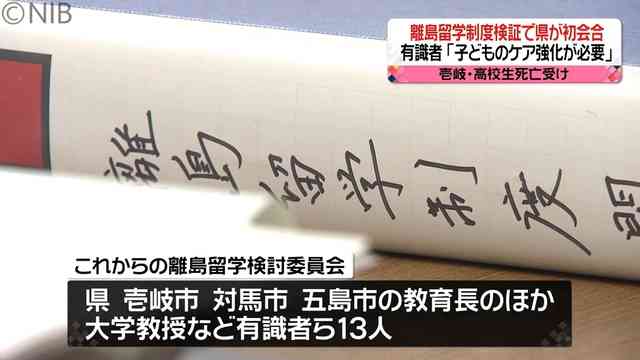 ©NIB
離島留学制度検証で県が初会合
有識者「子どものケア強化が必要」
壱岐・高校生死亡受け
離島留学制度関
これからの離島留学検討委員会
県 壱岐市 対馬市 五島市の教育長のほか
大学教授など有識者ら13人